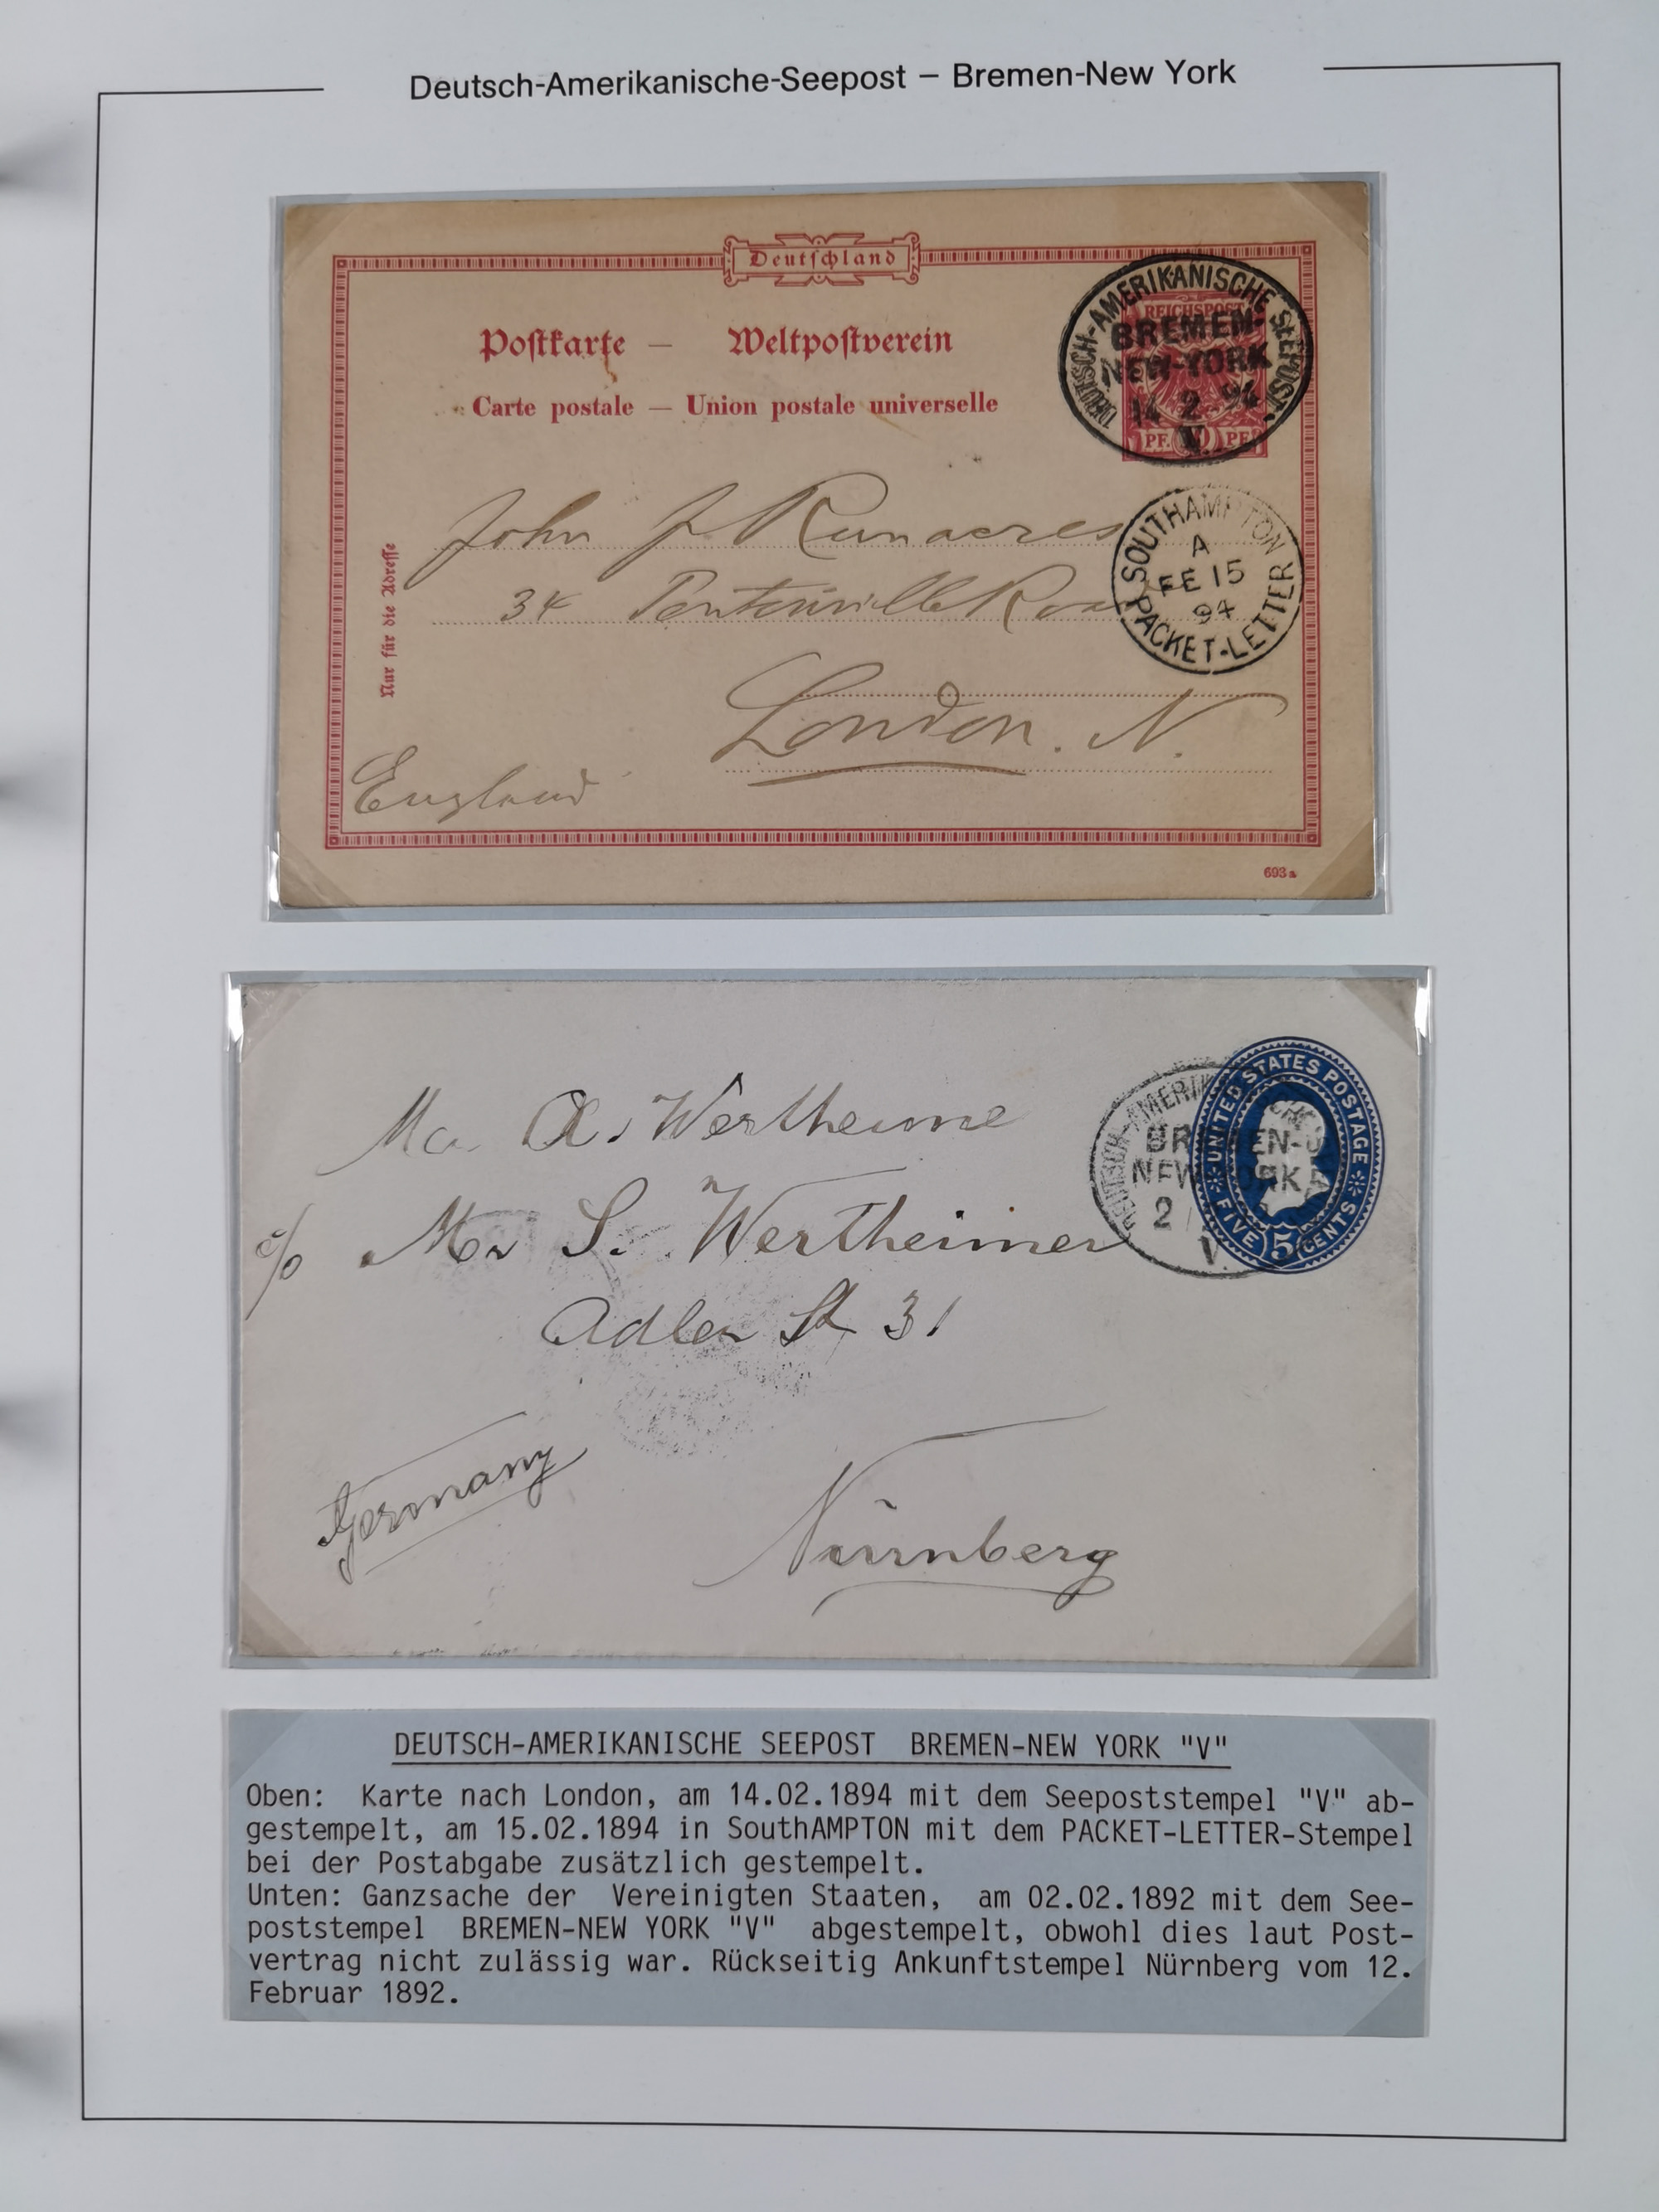 Deutsch-Amerikanische-Seepost – Bremen-New York
Deutschland
Postkarte — Weltpostverein
Carte postale — Union postale universelle
DEUTSCH-AMERIKANISCHE SEEPOST
REICHSPOST
BREMEN-
NEW-YORK
14 2 94
V.
PF. 10 PF.
John J Runacres
34 Pentonville Road
London. N.
England
Nur für die Adresse
SOUTHAMPTON
A
FE 15
94
PACKET-LETTER
693 a
UNITED STATES POSTAGE
FIVE 5 CENTS
BREMEN-
NEW YORK
2
V.
Mr. A. Wertheime
c/o Mr S. Wertheimer
Adler St 31
Germany
Nürnberg
DEUTSCH-AMERIKANISCHE SEEPOST BREMEN-NEW YORK "V"
Oben: Karte nach London, am 14.02.1894 mit dem Seepoststempel "V" ab-
gestempelt, am 15.02.1894 in SouthAMPTON mit dem PACKET-LETTER-Stempel
bei der Postabgabe zusätzlich gestempelt.
Unten: Ganzsache der Vereinigten Staaten, am 02.02.1892 mit dem See-
poststempel BREMEN-NEW YORK "V" abgestempelt, obwohl dies laut Post-
vertrag nicht zulässig war. Rückseitig Ankunftstempel Nürnberg vom 12.
Februar 1892.